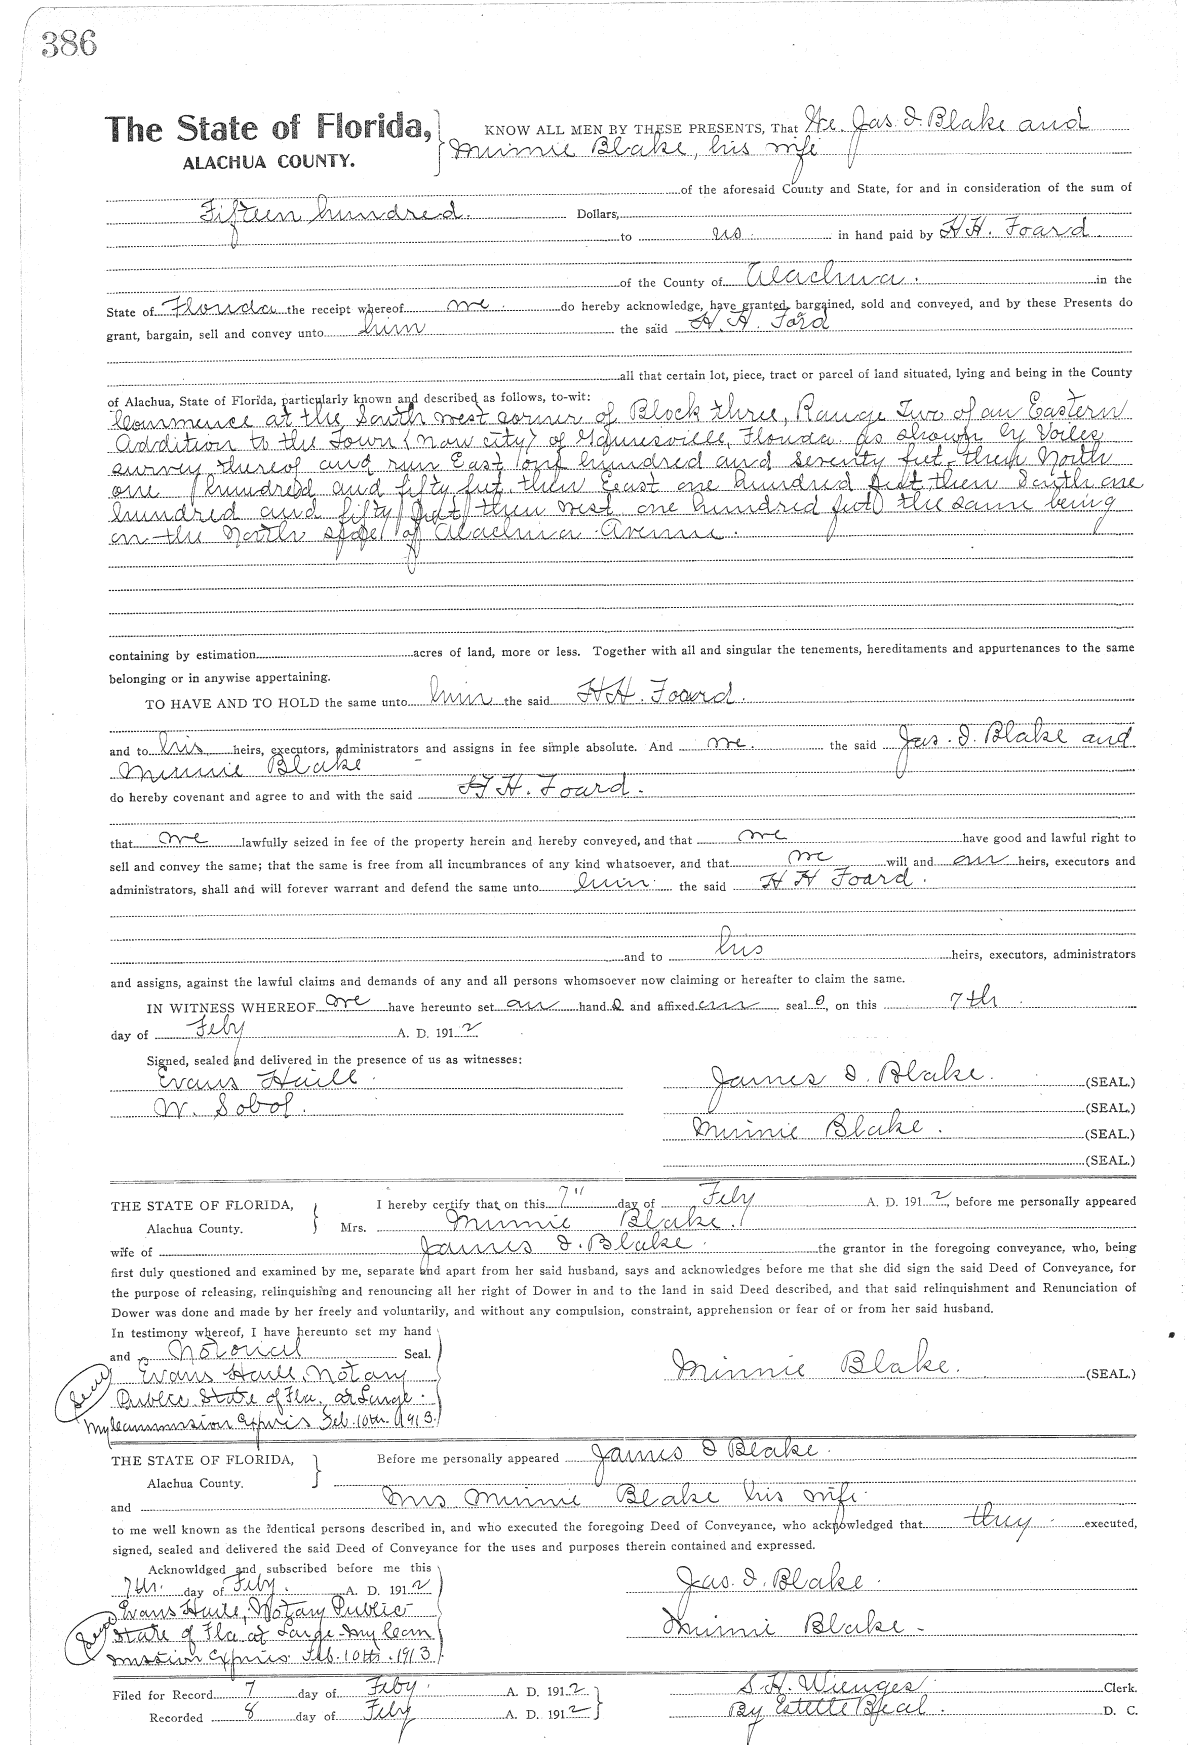 386
The State of Florida, KNOW ALL MEN BY THESE PRESENTS, That We. Jas. D. Blake and
ALACHUA COUNTY. Minnie Blake, his wife
of the aforesaid County and State, for and in consideration of the sum of
Fifteen hundred. Dollars,
to us. in hand paid by H.H. Foard.
of the County of Alachua. in the
State of Florida the receipt whereof we. do hereby acknowledge, have granted, bargained, sold and conveyed, and by these Presents do
grant, bargain, sell and convey unto him the said H. H. Ford
all that certain lot, piece, tract or parcel of land situated, lying and being in the County
of Alachua, State of Florida, particularly known and described as follows, to-wit:
Commence at the South west corner of Block three, Range Two of an Eastern
Addition to the Town (now city) of Gainesville, Florida as shown by Voiles
survey thereof and run East one hundred and seventy feet, then North
one hundred and fifty feet, then East one hundred feet then South one
hundred and fifty feet then west one hundred feet the same being
on the North side of Alachua Avenue.
containing by estimation acres of land, more or less. Together with all and singular the tenements, hereditaments and appurtenances to the same
belonging or in anywise appertaining.
TO HAVE AND TO HOLD the same unto him the said H.H. Foard.
and to his heirs, executors, administrators and assigns in fee simple absolute. And we. the said Jas. D. Blake and
Minnie Blake
do hereby covenant and agree to and with the said H. H. Foard.
that we lawfully seized in fee of the property herein and hereby conveyed, and that we have good and lawful right to
sell and convey the same; that the same is free from all incumbrances of any kind whatsoever, and that we will and our heirs, executors and
administrators, shall and will forever warrant and defend the same unto him. the said H H Foard.
and to his heirs, executors, administrators
and assigns, against the lawful claims and demands of any and all persons whomsoever now claiming or hereafter to claim the same.
IN WITNESS WHEREOF we have hereunto set our hand s and affixed our seal s, on this 7th
day of Feby A. D. 191 2
Signed, sealed and delivered in the presence of us as witnesses:
Evans Haile. James D. Blake. (SEAL.)
W. Sobol. (SEAL.)
Minnie Blake. (SEAL.)
(SEAL.)
THE STATE OF FLORIDA, I hereby certify that on this 7" day of Feby A. D. 191 2, before me personally appeared
Alachua County. Mrs. Minnie Blake.
wife of James D. Blake. the grantor in the foregoing conveyance, who, being
first duly questioned and examined by me, separate and apart from her said husband, says and acknowledges before me that she did sign the said Deed of Conveyance, for
the purpose of releasing, relinquishing and renouncing all her right of Dower in and to the land in said Deed described, and that said relinquishment and Renunciation of
Dower was done and made by her freely and voluntarily, and without any compulsion, constraint, apprehension or fear of or from her said husband.
In testimony whereof, I have hereunto set my hand
and Notorial Seal. Minnie Blake. (SEAL.)
Seal Evans Haile, Notary
Public State of Fla. at Large.
My Commission Expires Feb. 10th. 1913.
THE STATE OF FLORIDA, Before me personally appeared James D Blake.
Alachua County.
and Mrs Minnie Blake his wife.
to me well known as the identical persons described in, and who executed the foregoing Deed of Conveyance, who acknowledged that they executed,
signed, sealed and delivered the said Deed of Conveyance for the uses and purposes therein contained and expressed.
Acknowldged and subscribed before me this
7th. day of Feby. A. D. 191 2 Jas. D. Blake.
Evans Haile, Notary Public
Seal State of Fla at Large My Com Minnie Blake.
mission Expires. Feb. 10th. 1913.
Filed for Record 7 day of Feby. A. D. 191 2 S. H. Wienges Clerk.
Recorded 8 day of Feby A. D. 191 2 By Estelle Beal. D. C.